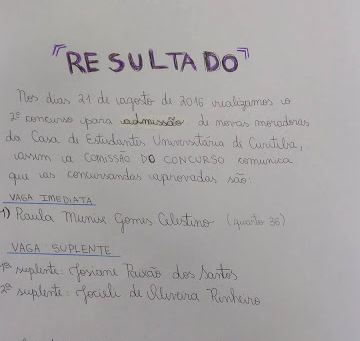 "RESULTADO"
Nos dias 21 de agosto de 2016 realizamos o
2º concurso para admissão de novas moradoras
da Casa de Estudantes Universitária de Curitiba,
assim a COMISSÃO DO CONCURSO comunica
que as concursandas aprovadas são:
VAGA IMEDIATA
1) Paula Munise Gomes Celestino (quarto 36)
VAGA SUPLENTE
1ª suplente: Josiane Paixão dos Santos
2ª suplente: Jocieli de Oliveira Pinheiro